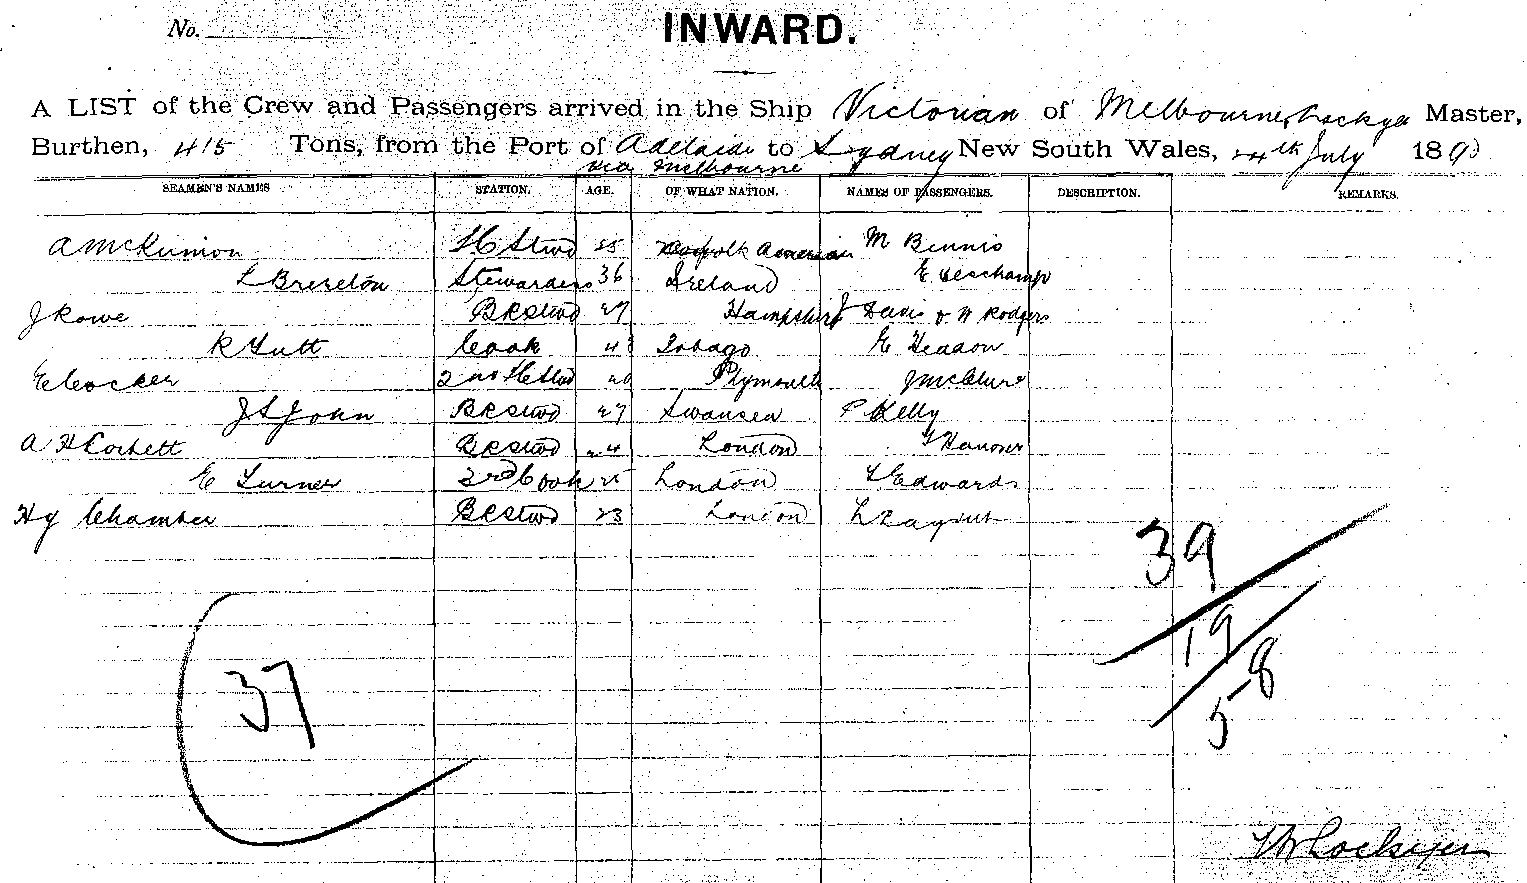 No.
INWARD.
A LIST of the Crew and Passengers arrived in the Ship Victorian of Melbourne, Lockyer Master,
Burthen, 415 Tons, from the Port of Adelaide to Sydney New South Wales, 24th July 189
via Melbourne
SEAMEN'S NAMES STATION. AGE. OF WHAT NATION. NAMES OF PASSENGERS. DESCRIPTION. REMARKS.
A McKinnon Stwd American M Bennis
L Brereton Stewardess 36 Ireland E Deschamp
J Rowe BR Stwd 27 Hampshire J Davis & W Rodgers
R Tutt Cook 43 Tobago E Headon
E Cocker 2nd Stwd Plymouth J McClure
J St John BR Stwd 27 Swansea P Kelly
A H Corbett BR Stwd 24 London Hanover
E Turner 2nd Cook 25 London Edwards
Hy Chamber BR Stwd 23 London
39
19
58
37
Lockyer